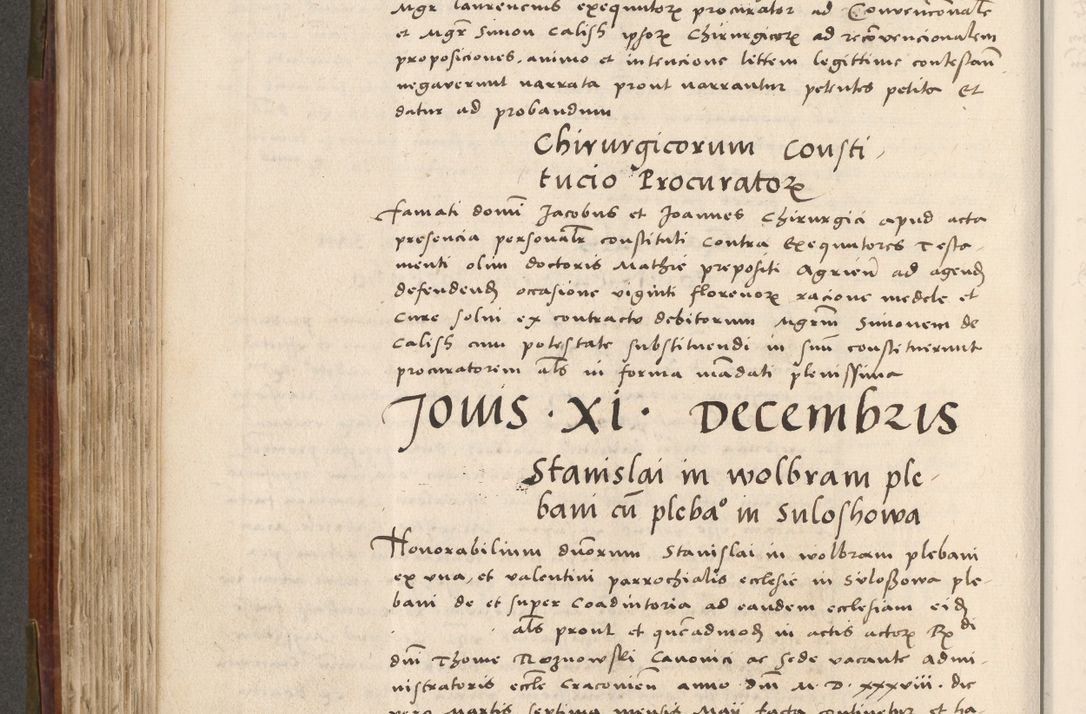 Mgr laurencius exequutorꝝ procurator ad Convenconale
et Mgr̄ Simon Calisz ipsorꝝ Chirurgicorꝝ ad recōvencionalem
proposiciones, animo et intencione littem legittime contestan̄
negaverunt narrata prout narrantur petentes petita Et
datur ad probandum
Chirurgicorum Consti
tucio Procuratorꝝ
Famati domī Jacobus et Joannes Chirurgici apud acta
presencia personalr constituti Contra Exequutores Testa-
menti olim doctoris Mathie prepositi Agrien̄ ad agend
defendend occasione viginti florenorꝝ racione medele et
Cure solvi ex contractu debitorum Mgrm̄ Simonem de
Calisz cum potestate substituendi in suū constituerunt
procuratorem als in forma mādati plenissima
Jovis · XI · Decembris
Stanislai in wolbram ple-
bani cū plebaº in Suloshowa
Honorabilium duorum Stanislai in wolbram plebani
ex una, et valentini parrochialis ecclesie in Suloßowa ple-
bani de et super Coadiutoria ad eandem ecclesiam eid
als prout et quēadmod in actis actorꝝ Rx di
dm̄ Thome Roznowski Canonici ac Sede vacante Admi-
nistratoris eccle Cracovien̄ anno dm̄ M. D. xxxviii. die
vero Martis septima mensis Maii facta continetur et ha-